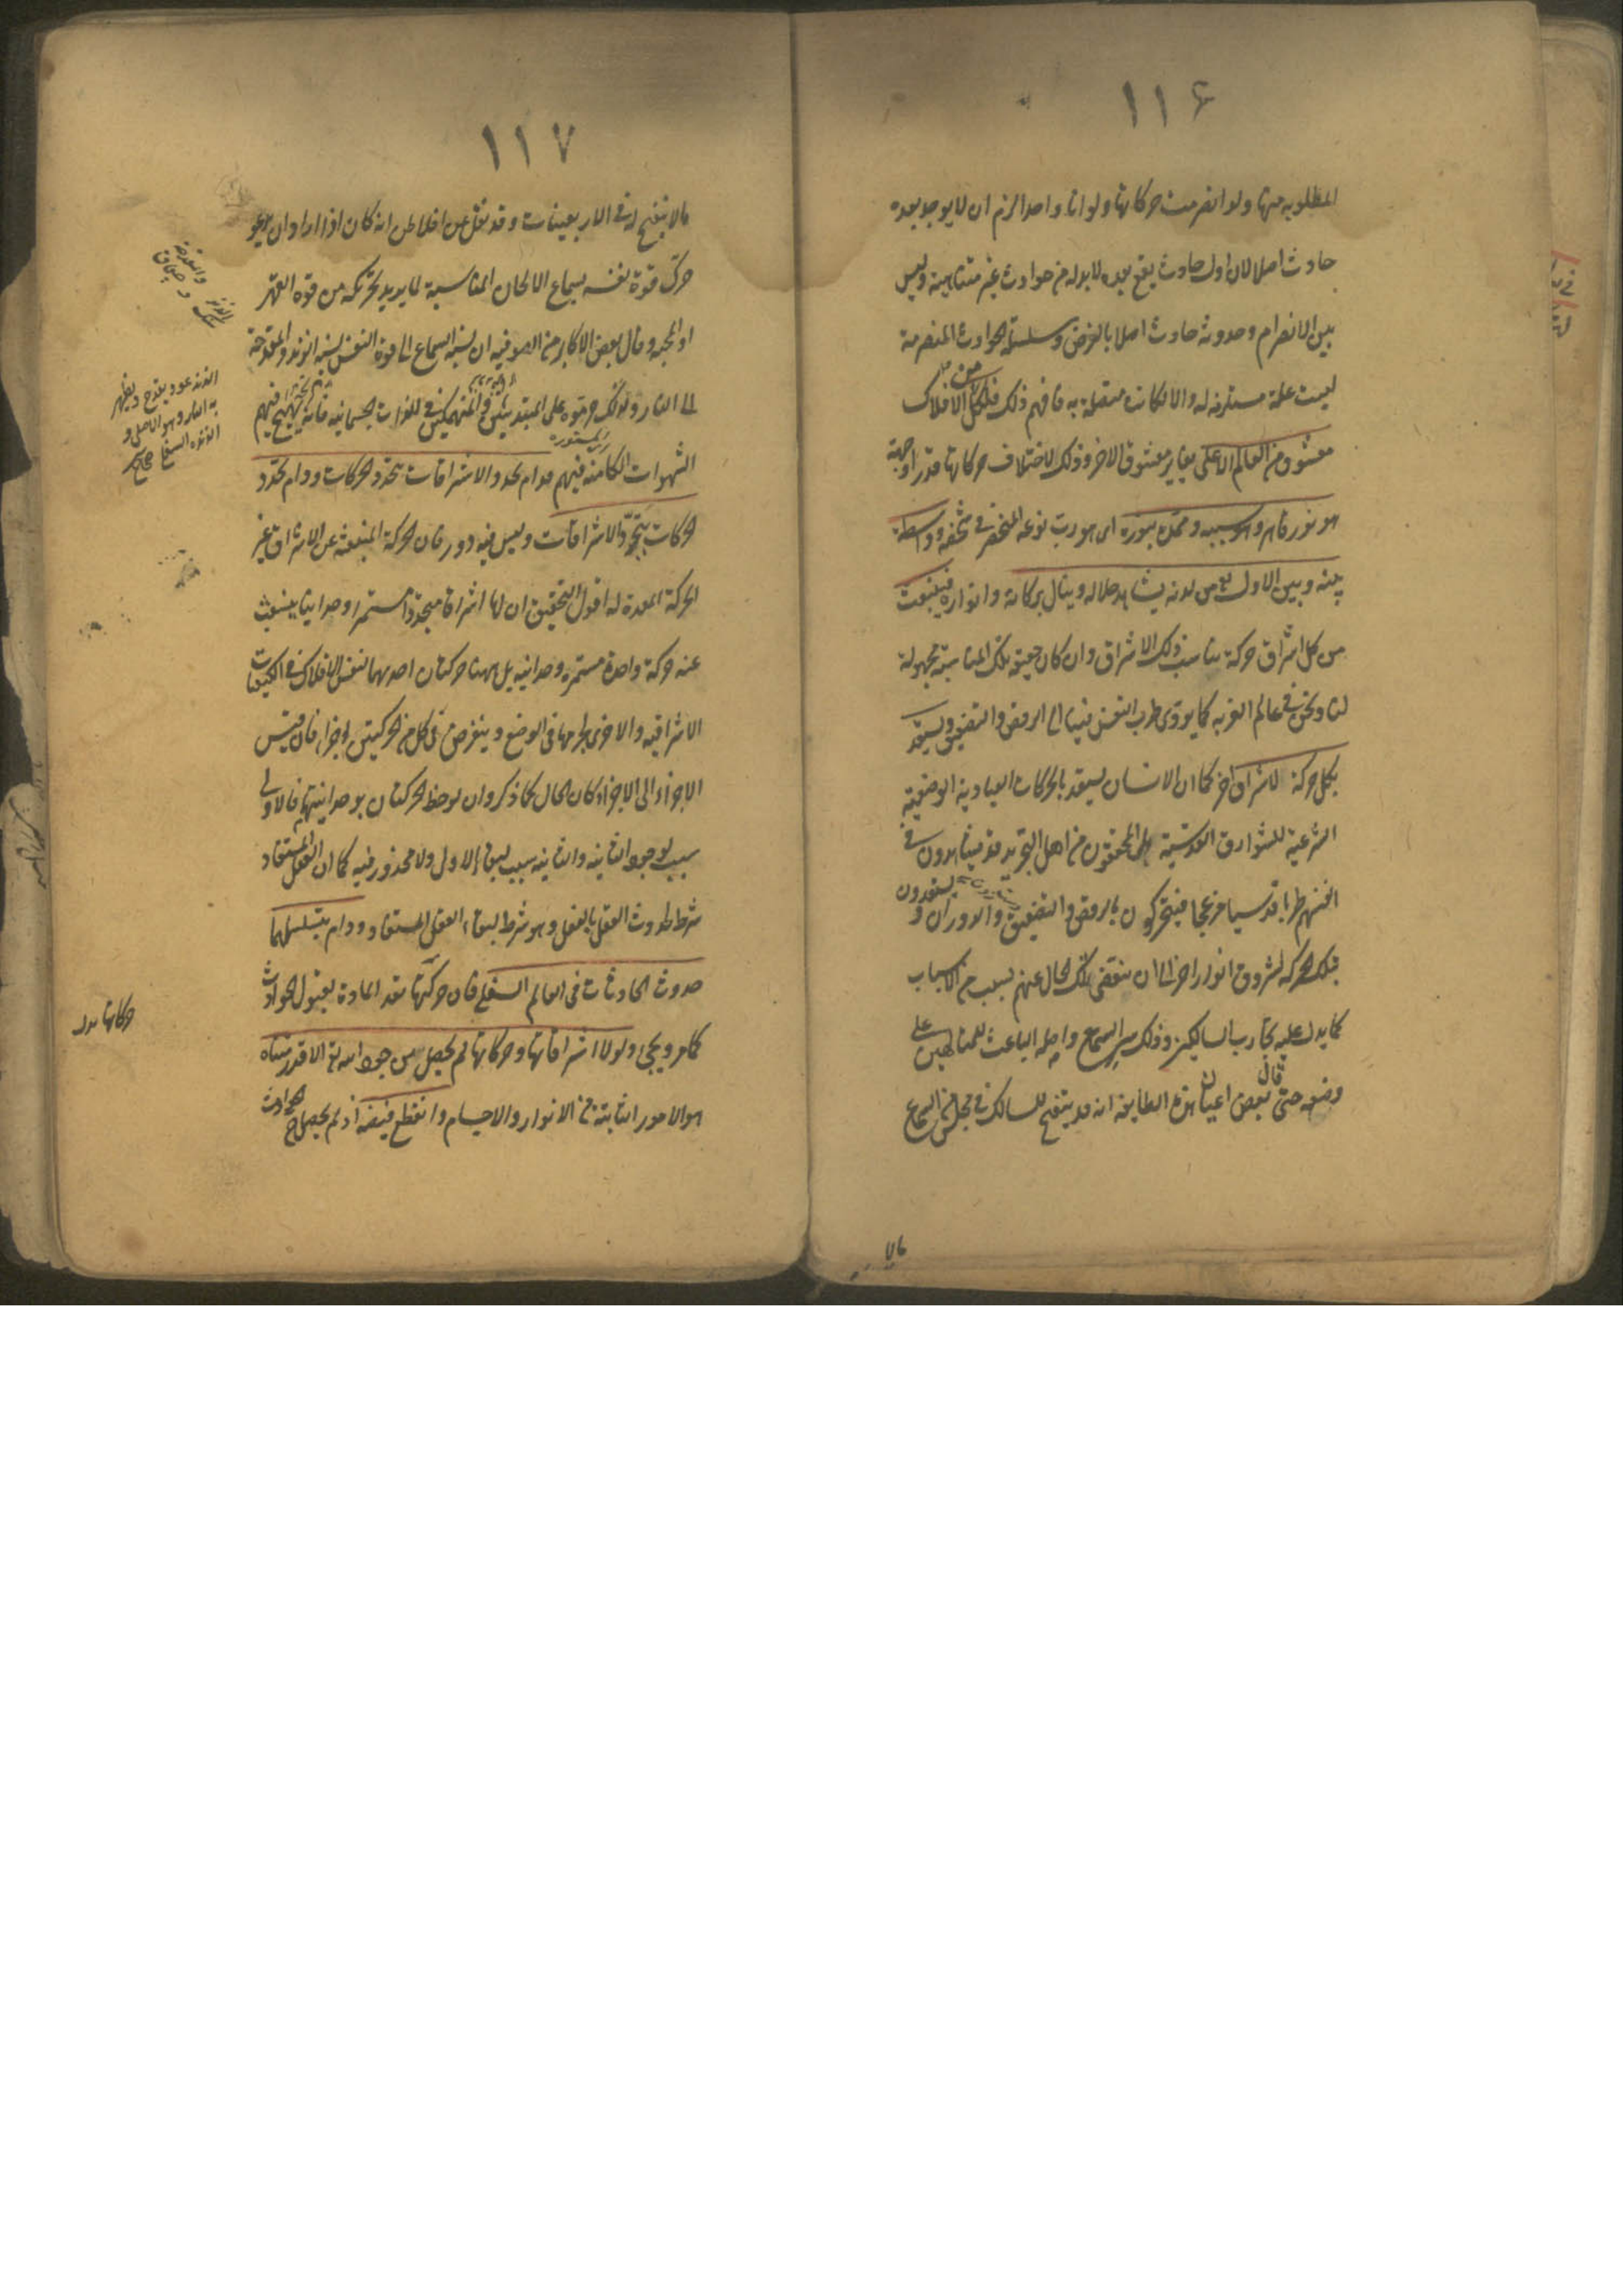 ١١۶
المطلوبه منها ولو انصرمت حركاتها ولو انا واحدا لزم ان لا يوجد بعده
حادث اصلا لان اول حادث يقع بعده لا بد له من حوادث غير متناهية وليس
بين الانصرام وحدوث حادث اصلا بالفرض وسلسلة الحوادث المنصرمة
ليست علة مستلزمة له والا لكانت متصلة به فافهم ذلك فلكل من الافلاك
معشوق من العالم الاعلى يغاير معشوق الاخر وذلك لاختلاف حركاتها قدرا وجهة
هو نور قاهر وهو سببه وممده بنوره اى هو رب نوعه المنحصر فى شخصه وواسطة
بينه وبين الاول تع من لدنه يشاهد جلاله وينال بركاته وانواره فينبعث
من كل اشراق حركة يناسب ذلك الاشراق وان كان حقيقة تلك المناسبة مجهولة
لنا ونحن فى عالم الغربه كما يودى طرب النفس فينا الى الرقص والتصفيق ويستعد
بكل حركة لاشراق اخر كما ان الانسان يستعد بالحركات العبادية الوضعية
الشرعية للشوارق القدسية بل المحققون من اهل التجريد قد يشاهدون فى
انفسهم طربا قدسيا مزعجا فيتحركون بالرقص والتصفيق والدوران ويستعدون
بتلك الحركة لشروق انوار اخر الى ان ينقضى ذلك الحال عنهم بسبب من الاسباب
كما يدل عليه تجارب السالكين وذلك سر السماع واصله الباعث للمتالهين على
وضعه حتى قال بعض اعيان هذه الطايفة انه قد ينفتح للسالك فى مجلس السماع
مالا
١١٧
مالا ينفتح له فى الاربعينات وقد نقل عن افلاطن انه كان اذا اراد ان يدعو
حرك قوة نفسه بسماع الالحان المناسبة لما يريد تحريكه من قوة القهر
او المحبه وقال بعض الاكابر من الصوفيه ان نسبة السماع الى قوة النفس نسبة الزند والمقدحة
الى النار ولذلك حرموه على المبتديين والمنهمكين فى اللذات الجسمانية فانه يهيج فيهم
الشهوات الكامنة فيهم فدام تجدد الاشراقات بتجدد الحركات ودام تجدد
الحركات بتجدد الاشراقات وليس فيه دور فان الحركة المنبعثة عن الاشراق غير
الحركة المعدة له اقول التحقيق ان لها اشراقا متجددا مستمرا وحدانيا ينبعث
عنه حركة واحدة مستمرة وحدانية بل ههنا حركتان احديهما لنفس الافلاك فى الكيفيات
الاشراقيه والاخرى لجرمها فى الوضع وينفرض فى كل من الحركتين اجزا فان قيس
الاجزاء الى الاجزاء كان الحال كما ذكر وان لوحظ الحركتان بوحدانيتهما فالاولى
سبب لوجود الثانيه والثانيه سبب لبقاء الاولى ولا محذور فيه كما ان العقل المستفاد
شرط لحدوث العقل بالفعل وهو شرط لبقاء العقل المستفاد ودام بتسلسلهما
حدوث الحادثات فى العالم السفلى فان حركتها تعد المادة لقبول الحوادث
كما مر ويجئ ولولا اشراقاتها وحركاتها لم يحصل من جود الله تع الا قدر متناه
هو الامور الثابتة من الانوار والاجسام وانقطع فيضه اذ لم يحصل ح الحوادث
الزند عود يقدح ويظهر
به النار وهو الاعلى و
الزنده السفلى صحاح
حركاتها بدل